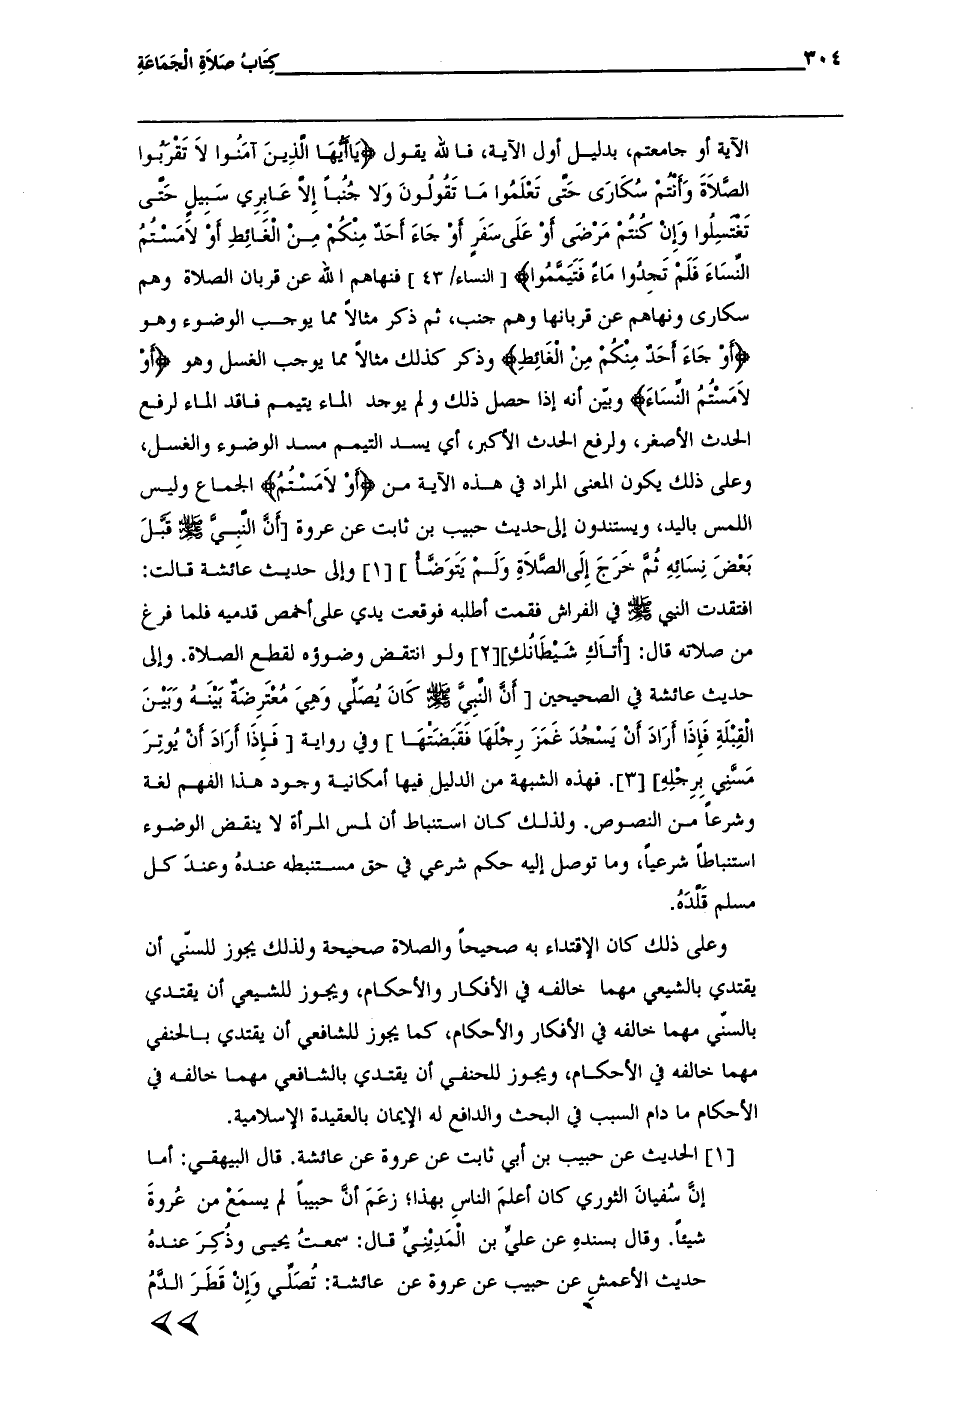 ٣٠٤ كِتَابُ صَلاَةِ الْجَمَاعَةِ
الآية أو جامعتم، بدليل أول الآية، فالله يقول ﴿يَاأَيُّهَا الَّذِينَ آمَنُوا لاَ تَقْرَبُوا
الصَّلاَةَ وَأَنْتُمْ سُكَارَى حَتَّى تَعْلَمُوا مَا تَقُولُونَ وَلاَ جُنُباً إِلاَّ عَابِرِي سَبِيلٍ حَتَّى
تَغْتَسِلُوا وَإِنْ كُنْتُمْ مَرْضَى أَوْ عَلَى سَفَرٍ أَوْ جَاءَ أَحَدٌ مِنْكُمْ مِنْ الْغَائِطِ أَوْ لاَمَسْتُمُ
النِّسَاءَ فَلَمْ تَجِدُوا مَاءً فَتَيَمَّمُوا﴾ [النساء/ ٤٣] فنهاهم الله عن قربان الصلاة وهم
سكارى ونهاهم عن قربانها وهم جنب، ثم ذكر مثالاً مما يوجب الوضوء وهو
﴿أَوْ جَاءَ أَحَدٌ مِنْكُمْ مِنْ الْغَائِطِ﴾ وذكر كذلك مثالاً مما يوجب الغسل وهو ﴿أَوْ
لاَمَسْتُمُ النِّسَاءَ﴾ وبيّن أنه إذا حصل ذلك ولم يوجد الماء يتيمم فاقد الماء لرفع
الحدث الأصغر، ولرفع الحدث الأكبر، أي يسد التيمم مسد الوضوء والغسل،
وعلى ذلك يكون المعنى المراد في هذه الآية من ﴿أَوْ لاَمَسْتُمُ﴾ الجماع وليس
اللمس باليد، ويستندون إلى حديث حبيب بن ثابت عن عروة [أَنَّ النَّبِيَّ ﷺ قَبَّلَ
بَعْضَ نِسَائِهِ ثُمَّ خَرَجَ إِلَى الصَّلاَةِ وَلَمْ يَتَوَضَّأْ] [١] وإلى حديث عائشة قالت:
افتقدت النبي ﷺ في الفراش فقمت أطلبه فوقعت يدي على أخمص قدميه فلما فرغ
من صلاته قال: [أَتَاكِ شَيْطَانُكِ][٢] ولو انتقض وضوؤه لقطع الصلاة. وإلى
حديث عائشة في الصحيحين [أَنَّ النَّبِيَّ ﷺ كَانَ يُصَلِّي وَهِيَ مُعْتَرِضَةٌ بَيْنَهُ وَبَيْنَ
الْقِبْلَةِ فَإِذَا أَرَادَ أَنْ يَسْجُدَ غَمَزَ رِجْلَهَا فَقَبَضَتْهَا] وفي رواية [فَإِذَا أَرَادَ أَنْ يُوتِرَ
مَسَّنِي بِرِجْلِهِ] [٣]. فهذه الشبهة من الدليل فيها أمكانية وجود هذا الفهم لغة
وشرعاً من النصوص. ولذلك كان استنباط أن لمس المرأة لا ينقض الوضوء
استنباطاً شرعياً، وما توصل إليه حكم شرعي في حق مستنبطه عندهُ وعندَ كل
مسلم قَلَّدَهُ.
وعلى ذلك كان الإقتداء به صحيحاً والصلاة صحيحة ولذلك يجوز للسنّي أن
يقتدي بالشيعي مهما خالفه في الأفكار والأحكام، ويجوز للشيعي أن يقتدي
بالسنّي مهما خالفه في الأفكار والأحكام، كما يجوز للشافعي أن يقتدي بالحنفي
مهما خالفه في الأحكام، ويجوز للحنفي أن يقتدي بالشافعي مهما خالفه في
الأحكام ما دام السبب في البحث والدافع له الإيمان بالعقيدة الإسلامية.
[١] الحديث عن حبيب بن أبي ثابت عن عروة عن عائشة. قال البيهقي: أما
إنَّ سُفيانَ الثوري كان أعلمَ الناسِ بهذا؛ زعَمَ أنَّ حبيباً لم يسمَعْ من عُروةَ
شيئاً. وقال بسندهِ عن عليِّ بن الْمَدِيْنِيِّ قال: سمعتُ يحيى وذُكِرَ عندهُ
حديث الأعمشِ عن حبيب عن عروة عن عائشة: تُصَلِّي وَإِنْ قَطَرَ الدَّمُ